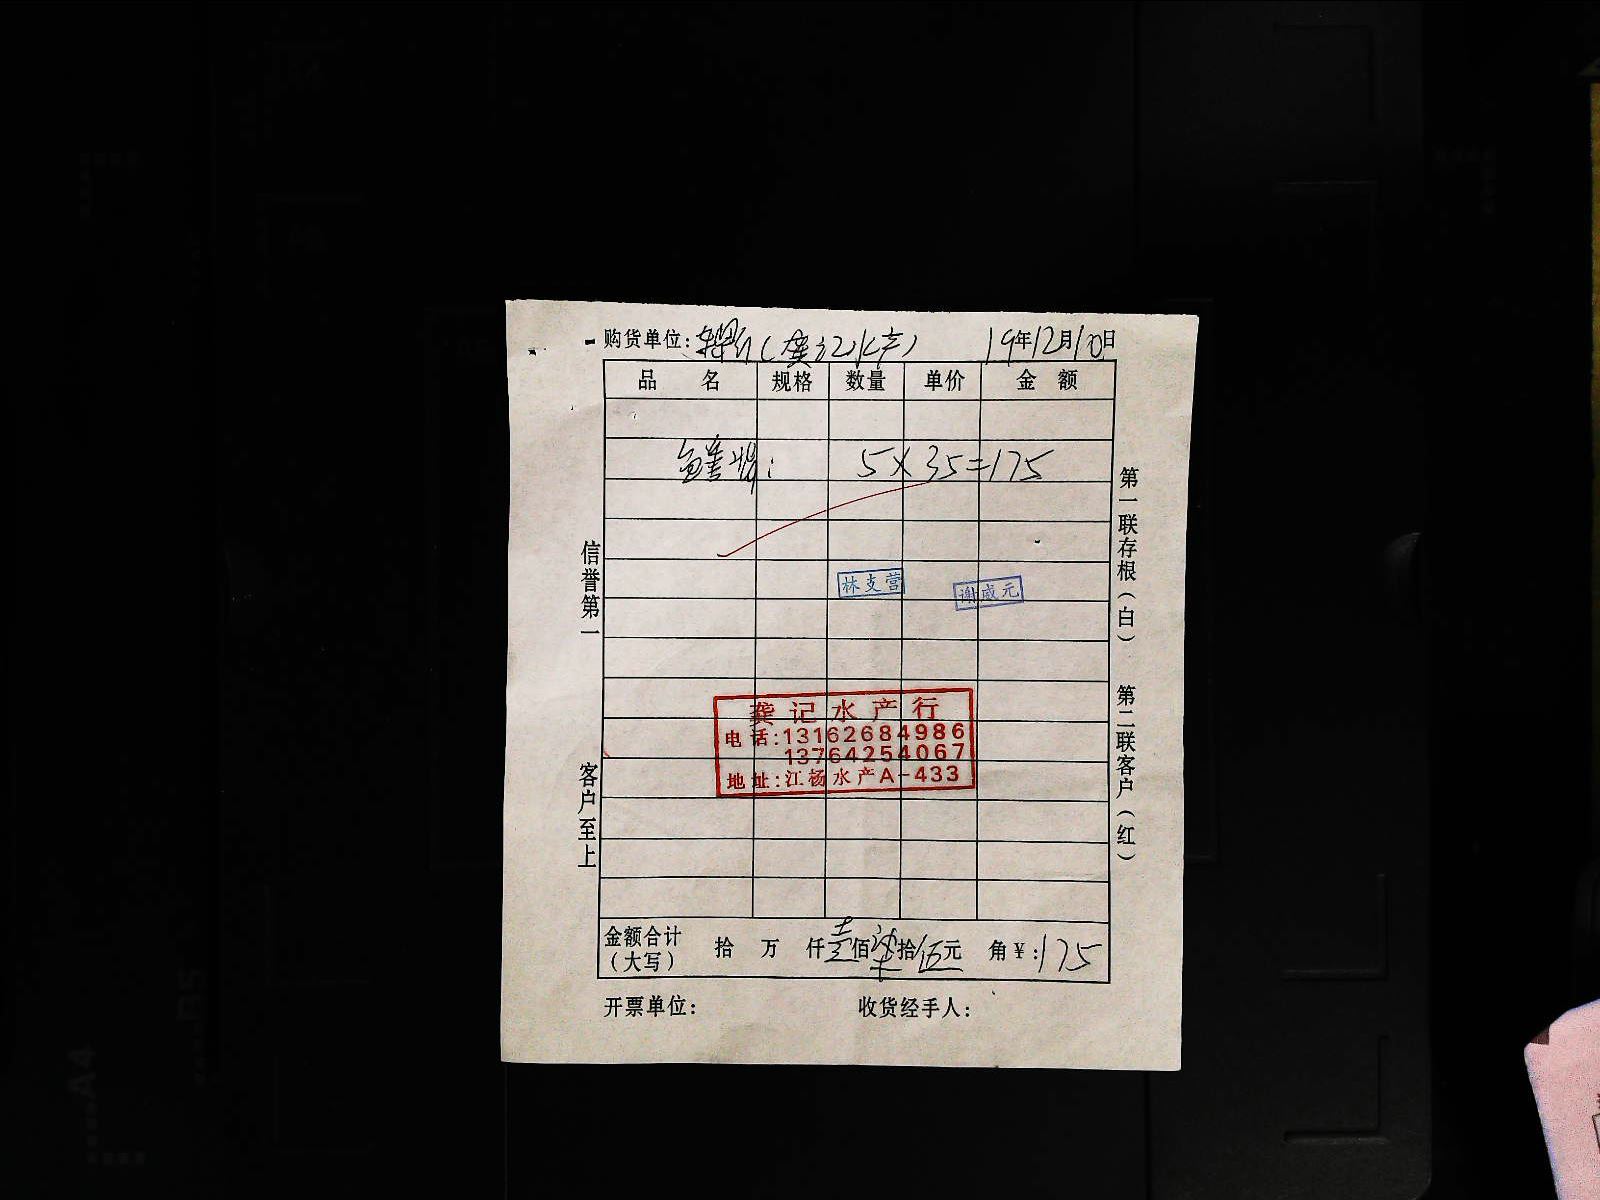 购货单位: (龚记水产) 19年12月10日
品 名 规格 数量 单价 金 额
鳝 : 5×35=175
林支营 谢成元
龚记水产行
电话:13162684986
13764254067
地址:江杨水产A-433
金额合计(大写) 拾 万 仟壹佰柒拾伍元 角¥:175
开票单位: 收货经手人:
信誉第一 客户至上
第一联存根(白) 第二联客户(红)
A4